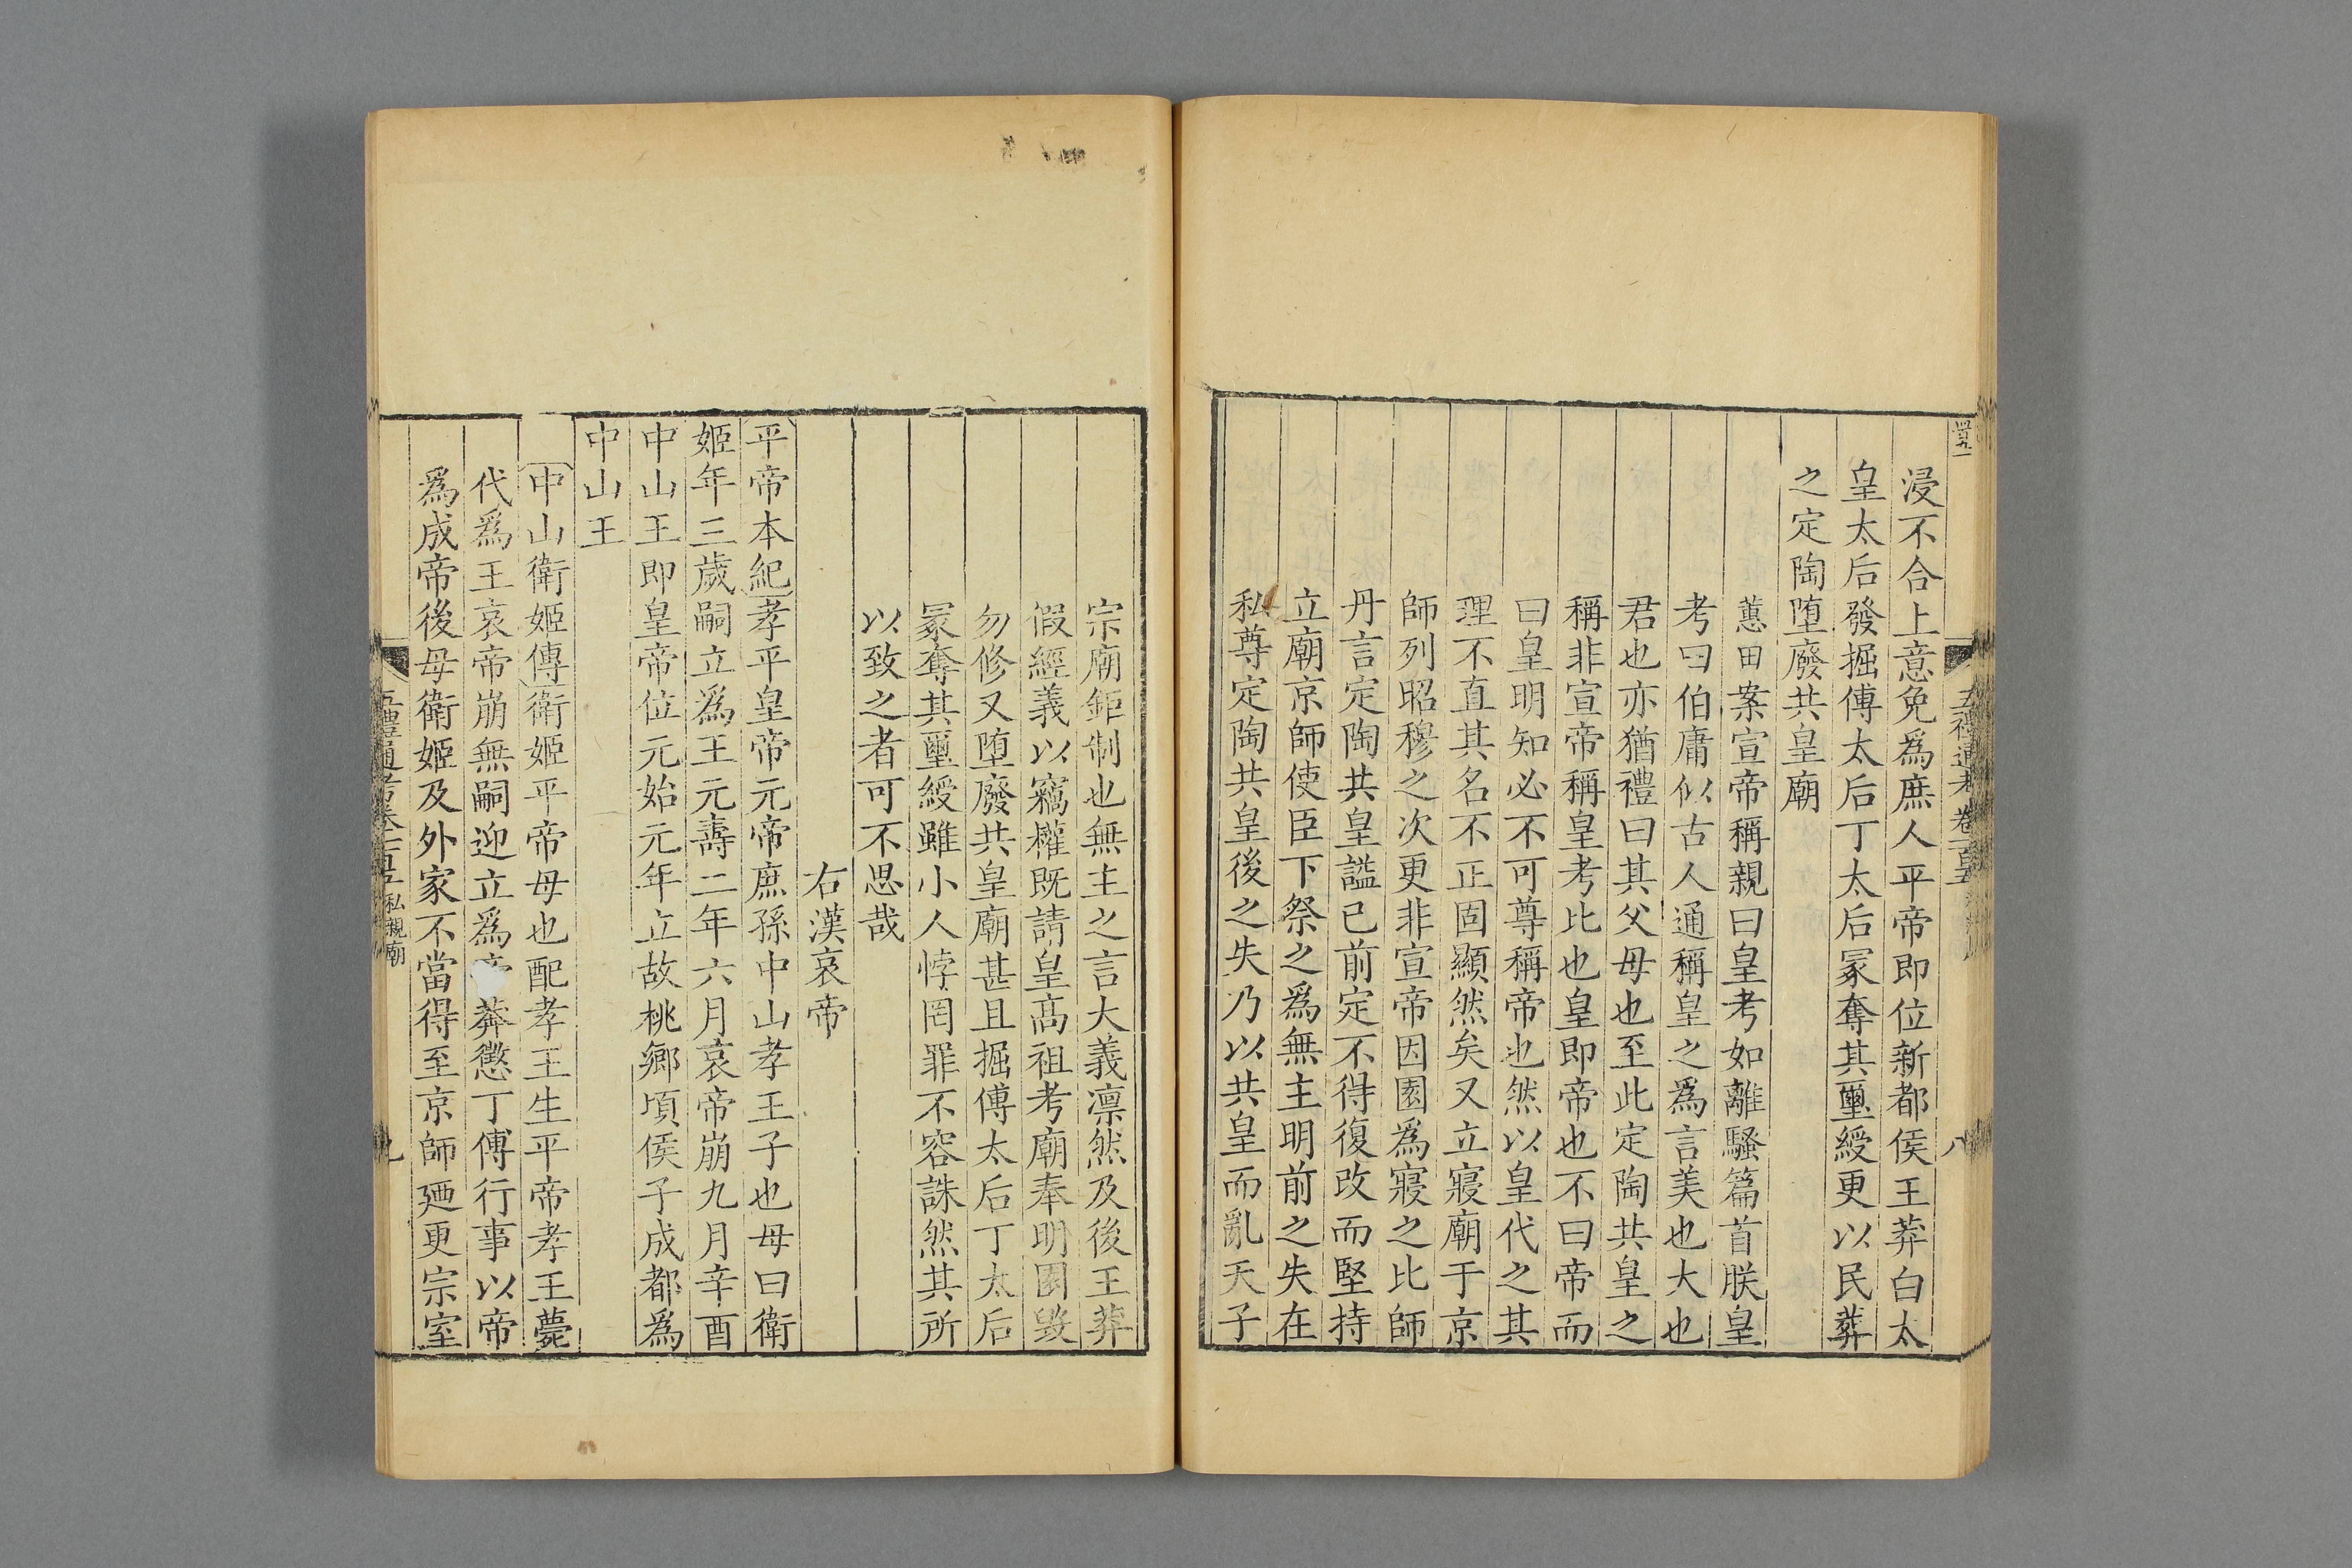 浸不合上意免爲庶人平帝即位新都侯王莽白太
皇太后發掘傅太后丁太后冢奪其璽綬更以民葬
之定陶堕廢共皇廟
蕙田案宣帝稱親曰皇考如離騷篇首朕皇
考曰伯庸似古人通稱皇之爲言美也大也
君也亦猶禮曰其父母也至此定陶共皇之
稱非宣帝稱皇考比也皇即帝也不曰帝而
曰皇明知必不可尊稱帝也然以皇代之其
理不直其名不正固顯然矣又立寢廟于京
師列昭穆之次更非宣帝因園爲寢之比師
丹言定陶共皇謚已前定不得復改而堅持
立廟京師使臣下祭之爲無主明前之失在
私尊定陶共皇後之失乃以共皇而亂天子
五禮通考卷一百五
八
宗廟鉅制也無主之言大義凛然及後王莽
假經義以竊權既請皇高祖考廟奉明園毀
勿修又堕廢共皇廟甚且掘傅太后丁太后
冢奪其璽綬雖小人悖罔罪不容誅然其所
以致之者可不思哉
右漢哀帝
平帝本紀孝平皇帝元帝庶孫中山孝王子也母曰衛
姬年三歲嗣立爲王元壽二年六月哀帝崩九月辛酉
中山王即皇帝位元始元年立故桃鄉頃侯子成都爲
中山王
中山衛姬傳衛姬平帝母也配孝王生平帝孝王薨
代爲王哀帝崩無嗣迎立爲莽懲丁傅行事以帝
爲成帝後母衛姬及外家不當得至京師廼更宗室
五禮通考卷一百五 私親廟
九